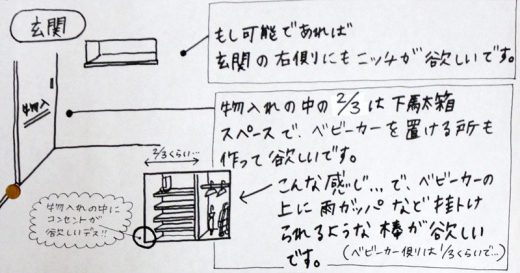 玄関
もし可能であれば
玄関の右側りにもニッチが欲しいです。
物入
物入れの中の2/3は下駄箱
スペースで、ベビーカーを置ける所も
作って欲しいです。
2/3くらい…
こんな感じ…で、ベビーカーの
上に雨ガッパなど挂トけ
られるような棒が欲しい
です。
(ベビーカー側りは1/3くらいで…)
物入れの中に
コンセントが
欲しいデス!!